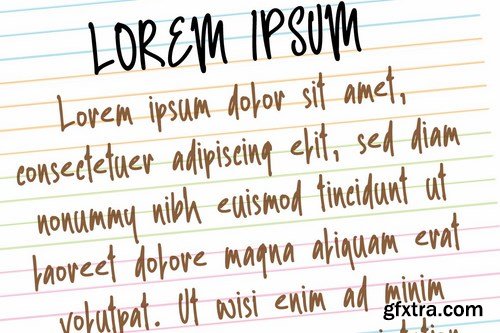 LOREM IPSUM
Lorem ipsum dolor sit amet,
consectetuer adipiscing elit, sed diam
nonummy nibh euismod tincidunt ut
laoreet dolore magna aliquam erat
volutpat. Ut wisi enim ad minim
gfxtra.com